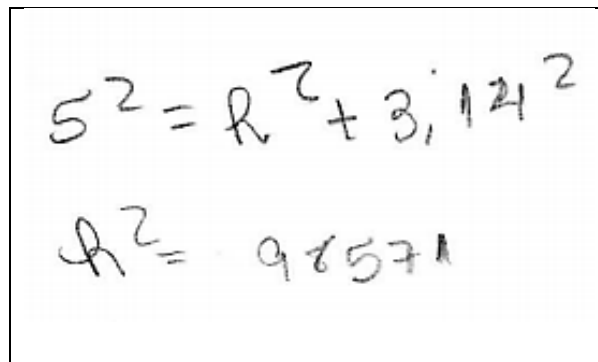 5² = h² + 3,14²
h² = 98571